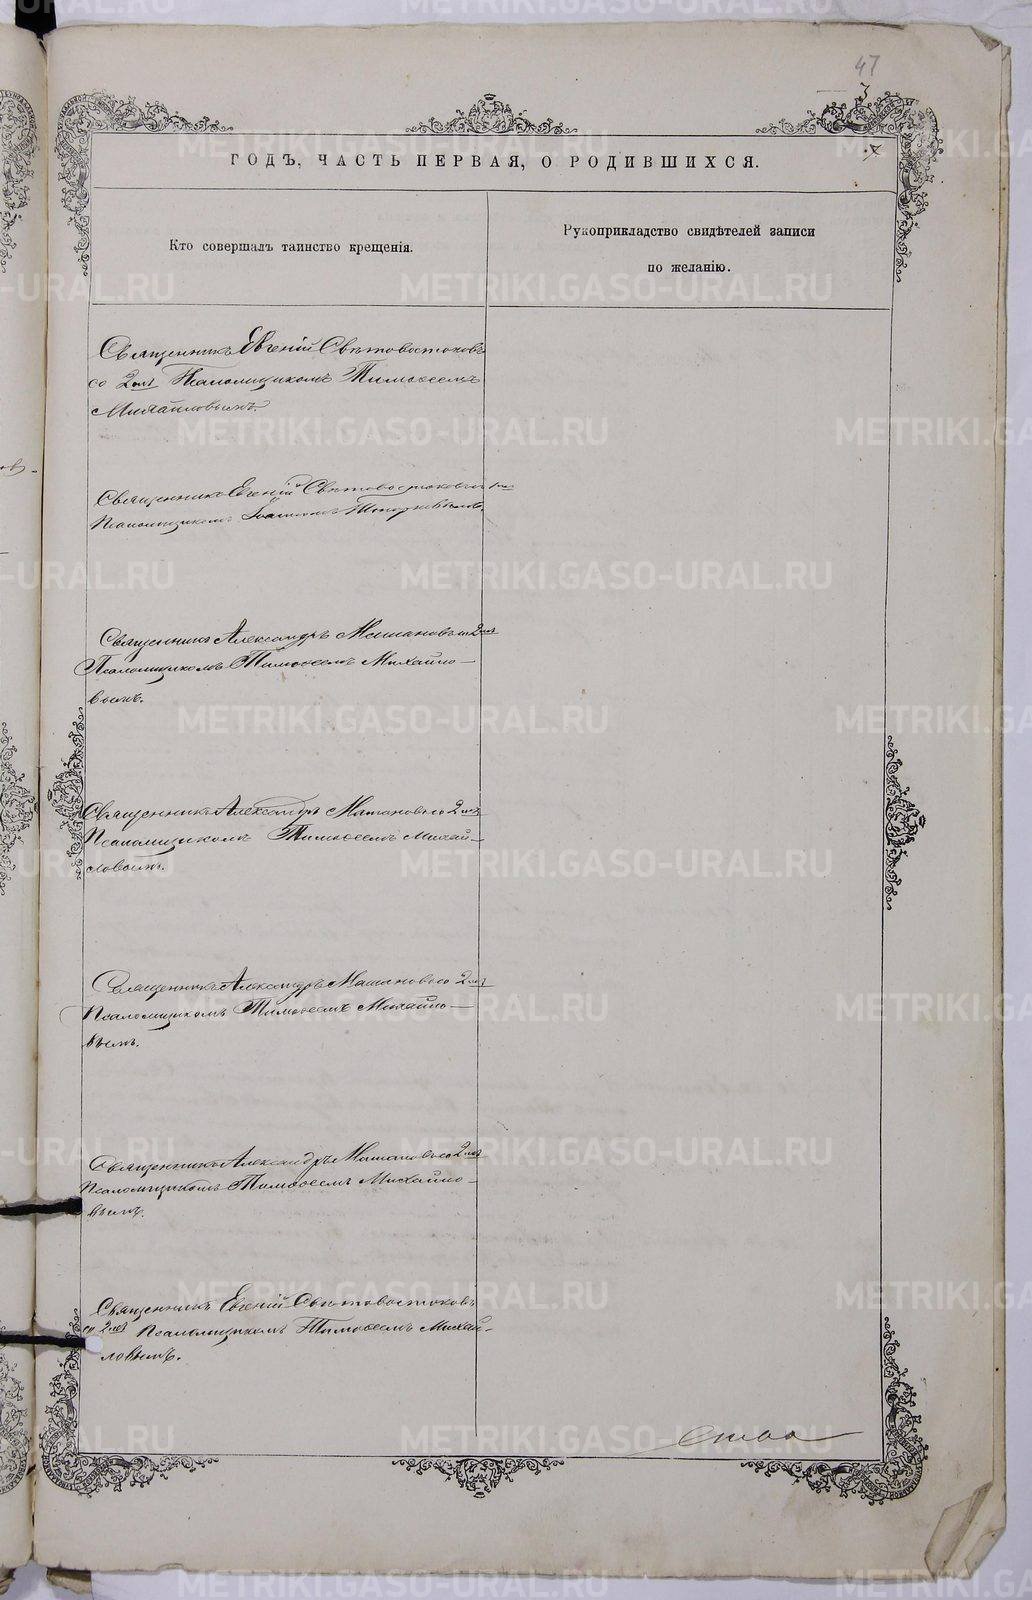 47
3
7
ГОДЪ, ЧАСТЬ ПЕРВАЯ, О РОДИВШИХСЯ.
Кто совершалъ таинство крещенія.
Рукоприкладство свидѣтелей записи
по желанію.
Священникъ Евгеній Свѣтовостоковъ
со 2мъ Псаломщикомъ Тимоѳеемъ
Михайловымъ.
Священникъ Евгеній Свѣтовостоковъ
Псаломщикомъ Іоанномъ
Священникъ Александръ со 2мъ
Псаломщикомъ Тимоѳеемъ Михайло-
вымъ.
Священникъ Александръ со 2мъ
Псаломщикомъ Тимоѳеемъ Михай-
ловымъ.
Священникъ Александръ со 2мъ
Псаломщикомъ Тимоѳеемъ Михайло-
вымъ.
Священникъ Александръ со 2мъ
Псаломщикомъ Тимоѳеемъ Михайло-
вымъ.
Священникъ Евгеній Свѣтовостоковъ
со 2мъ Псаломщикомъ Тимоѳеемъ Михай-
ловымъ.
METRIKI.GASO-URAL.RU